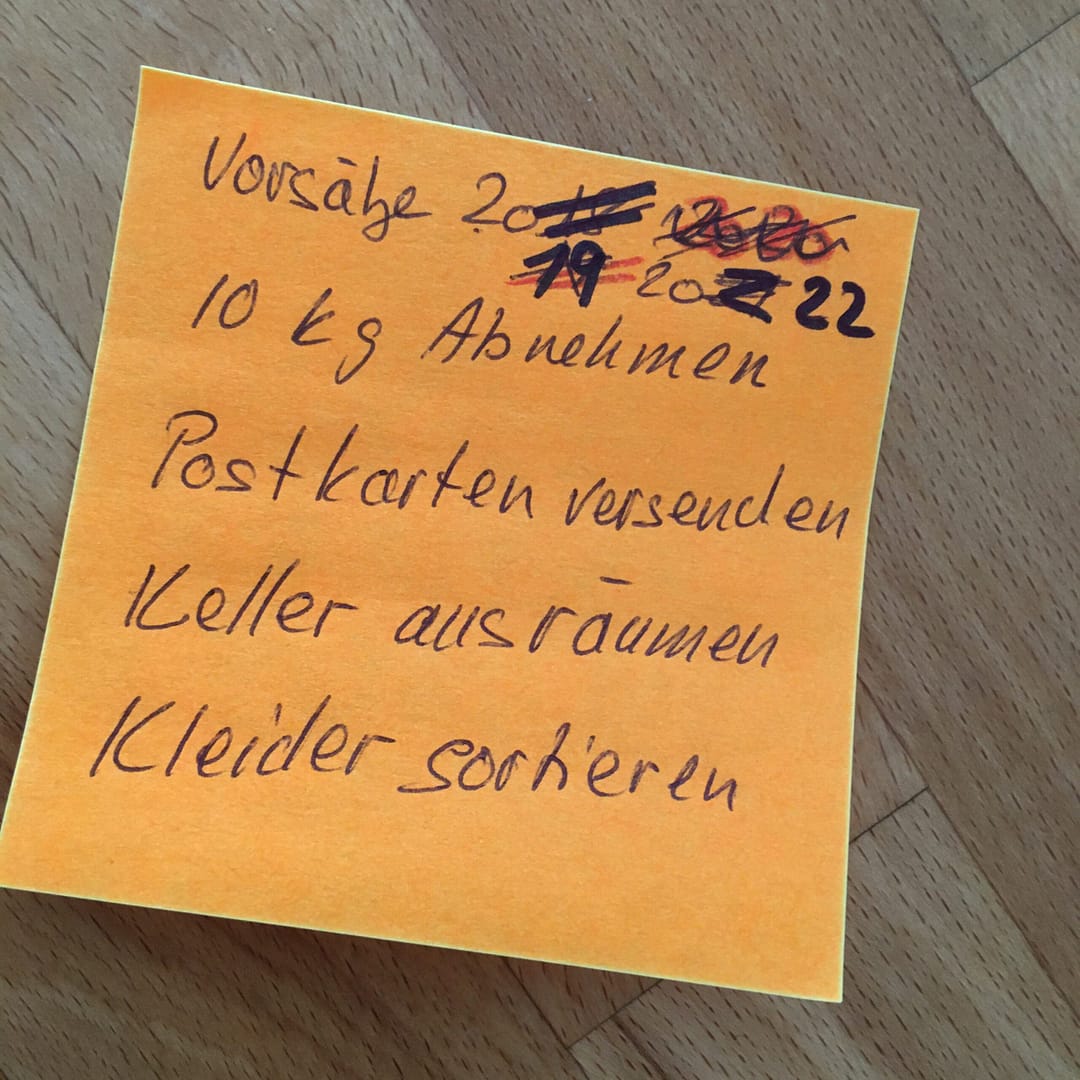 Vorsätze 2018 2020
19 2021 22
10 kg Abnehmen
Postkarten versenden
Keller ausräumen
Kleider sortieren